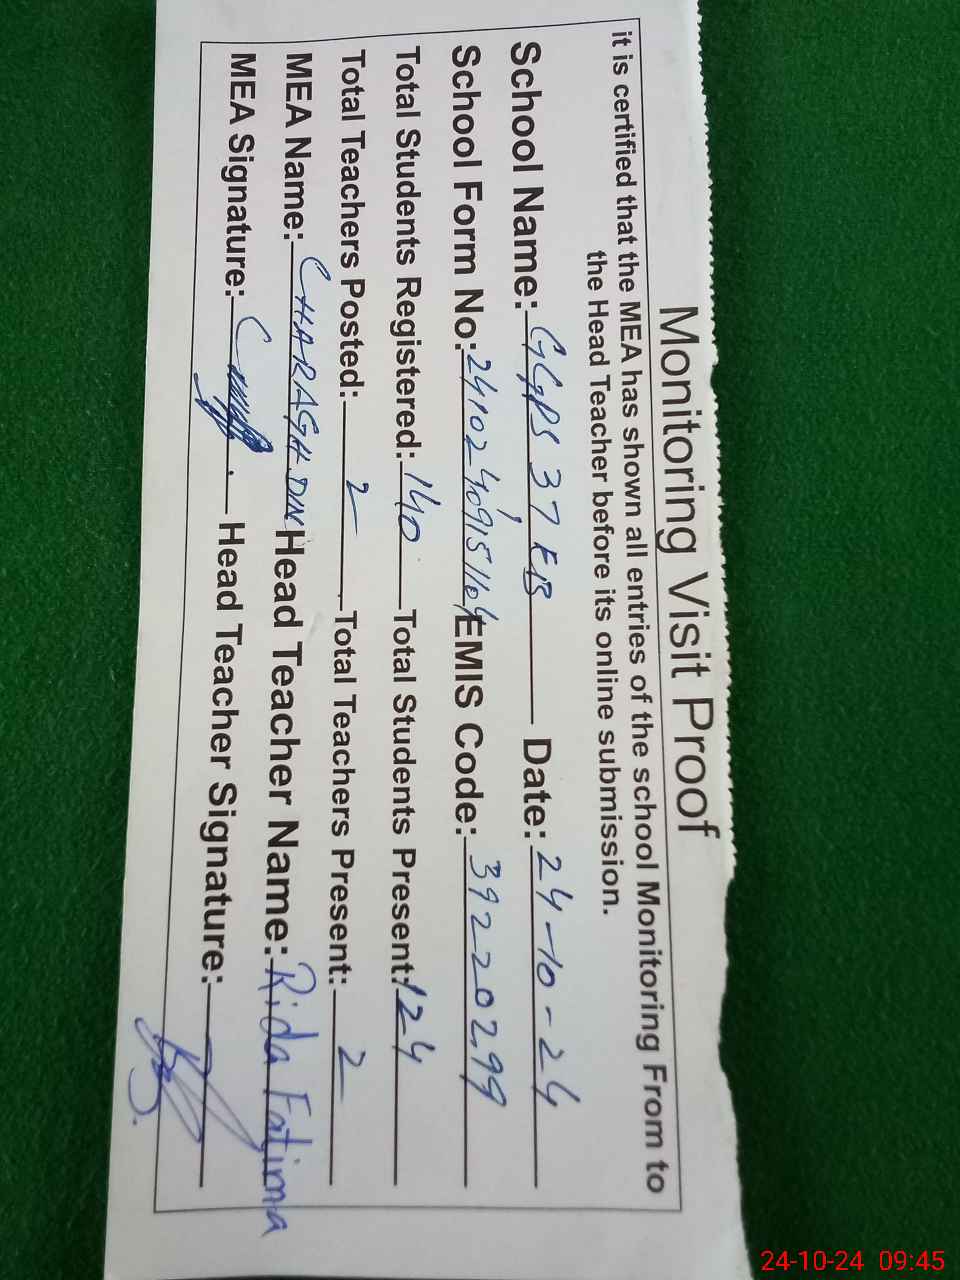 Monitoring Visit Proof
it is certified that the MEA has shown all entries of the school Monitoring From to
the Head Teacher before its online submission.
School Name: GGPS 37 EB Date: 24-10-24
School Form No: 24102409151164 EMIS Code: 39220299
Total Students Registered: 140 Total Students Present: 124
Total Teachers Posted: 2 Total Teachers Present: 2
MEA Name: CHARAGH DIN Head Teacher Name: Rida Fatima
MEA Signature: Head Teacher Signature:
24-10-24 09:45